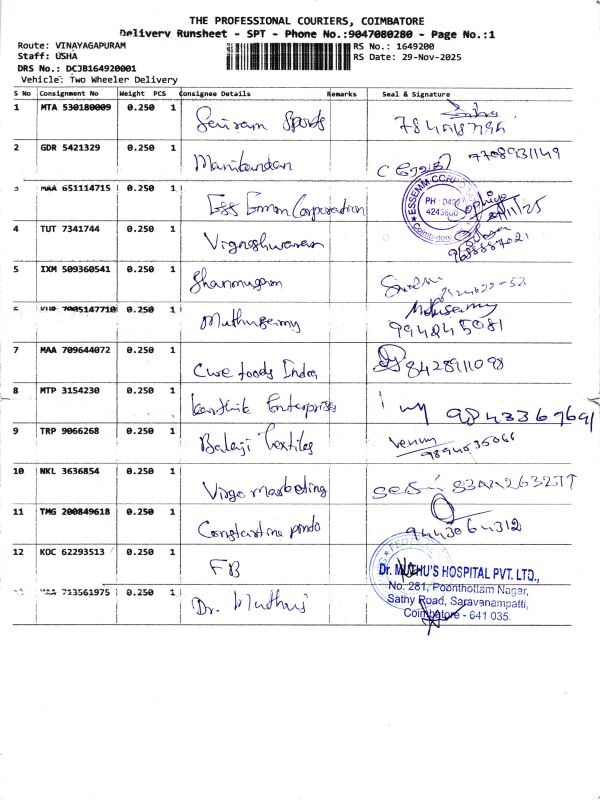 THE PROFESSIONAL COURIERS, COIMBATORE
Delivery Runsheet - SPT - Phone No.:9047080280 - Page No.:1
Route: VINAYAGAPURAM
RS No.: 1649200
Staff: USHA
RS Date: 29-Nov-2025
DRS No.: DCJB164920001
Vehicle: Two Wheeler Delivery
S No Consignment No Weight PCS Consignee Details Remarks Seal & Signature
1 MTA 530180009 0.250 1 Sairam Sports 7845187795
2 GDR 5421329 0.250 1 Manikandan 7708931149
3 MAA 651114715 0.250 1 Ess Emm Corporation
ESSEMM CORPO
PH : 0422
4243860
Coimbatore
Sophiya
29/11/25
4 TUT 7341744 0.250 1 Vigneshwaran 9688887021
5 IXM 509360541 0.250 1 Shanmugam
6 7005147710 0.250 1 Muthusamy Muthusamy
994245081
7 MAA 709644072 0.250 1 Cwe foods India 8428911098
8 MTP 3154230 0.250 1 Karthik Enterprises 9843367691
9 TRP 9066268 0.250 1 Balaji Textiles
9894535066
10 NKL 3636854 0.250 1 Virgo marketing
11 TMG 200849618 0.250 1 9443064312
12 KOC 62293513 0.250 1 FB
13 MAA 713561975 0.250 1 Dr. Muthus
Dr. MUTHU'S HOSPITAL PVT. LTD.,
No. 281, Poonthottam Nagar,
Sathy Road, Saravanampatti,
Coimbatore - 641 035.